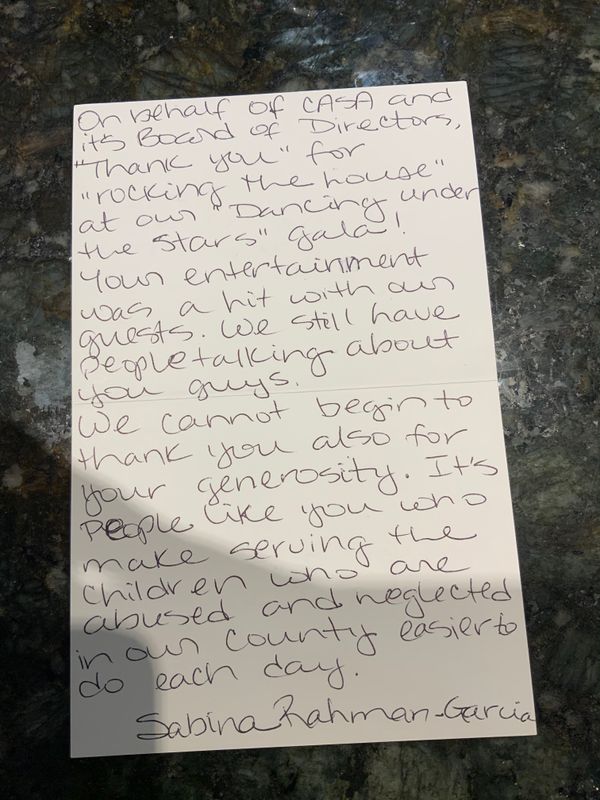 On behalf of CASA and
its Board of Directors,
"Thank you" for
"rocking the house"
at our "Dancing under
the Stars" gala!
Your entertainment
was a hit with our
guests. We still have
people talking about
you guys.
We cannot begin to
thank you also for
your generosity. It's
people like you who
make serving the
children who are
abused and neglected
in our County easier to
do each day.
Sabina Rahman-Garcia